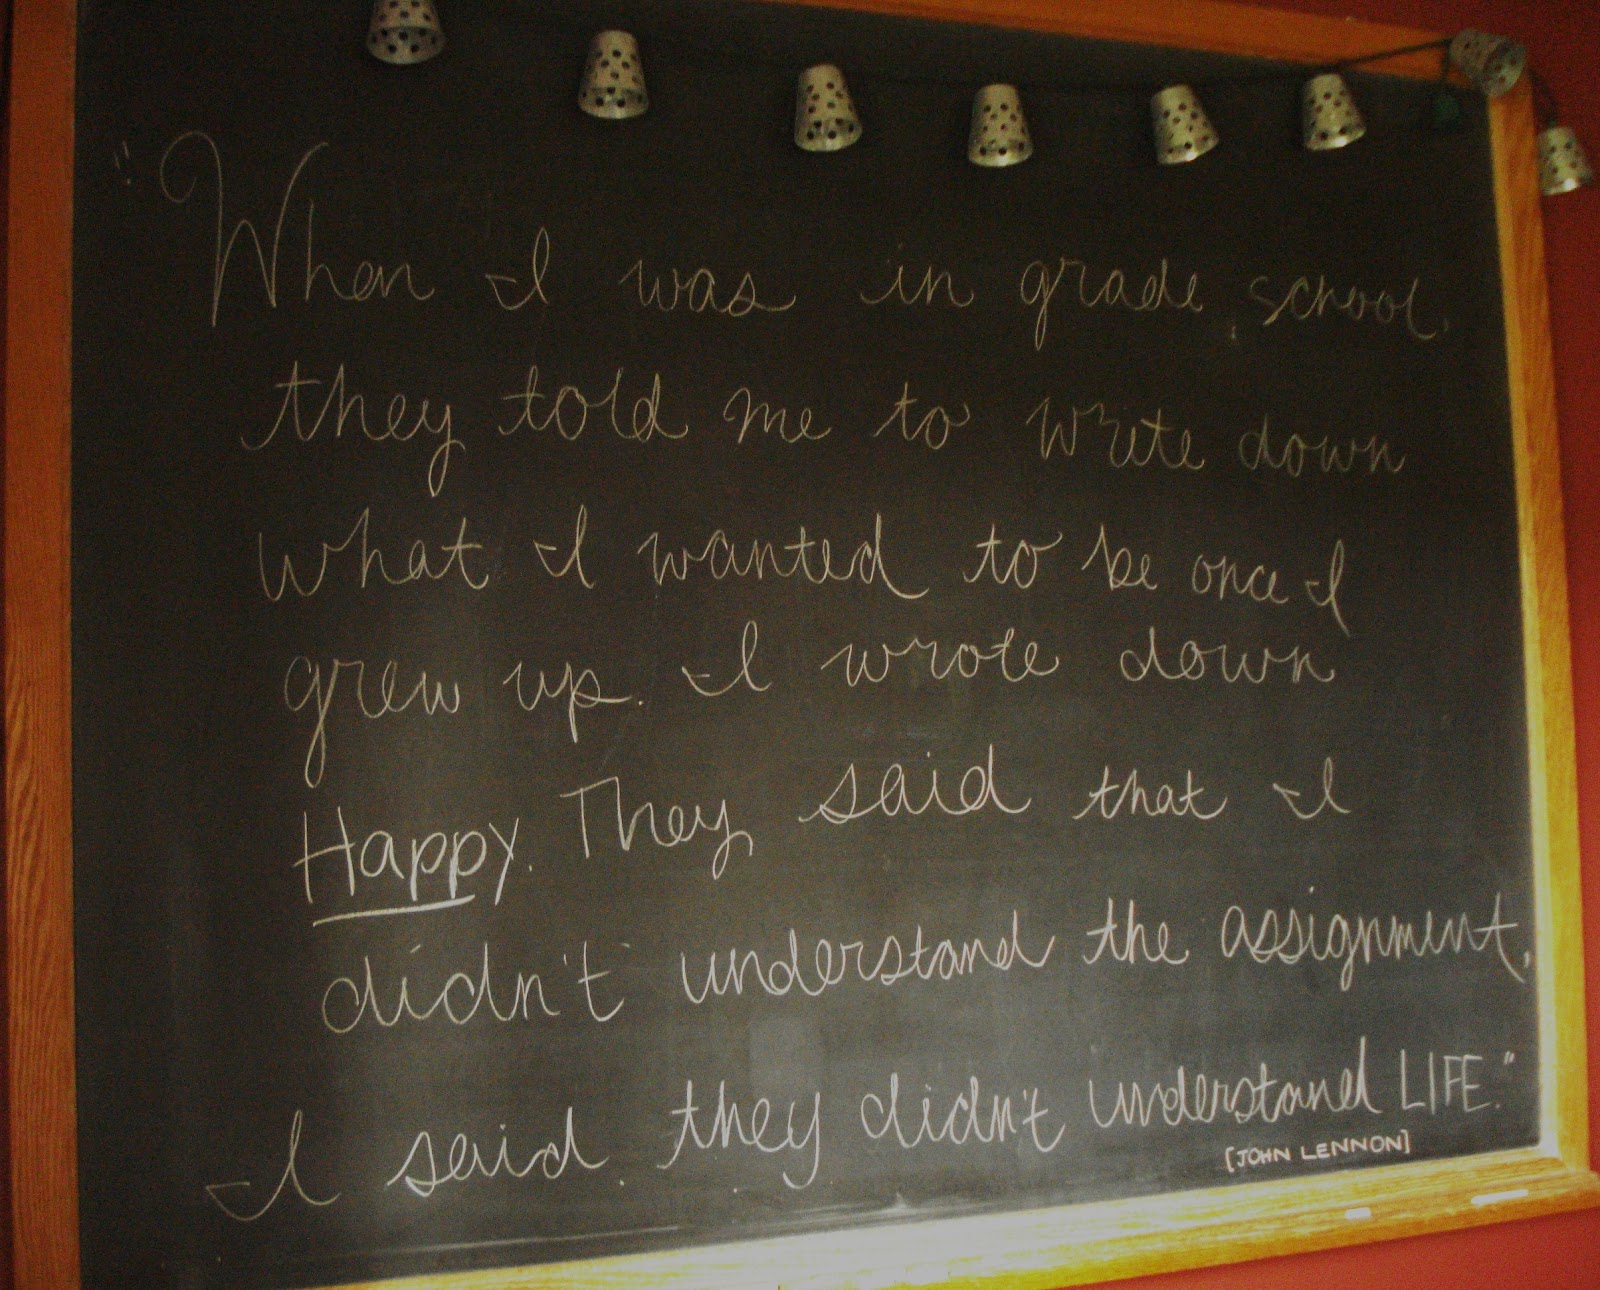 "When I was in grade school,
they told me to write down
what I wanted to be once I
grew up. I wrote down
Happy. They said that I
didn't understand the assignment,
I said they didn't understand LIFE."
[JOHN LENNON]